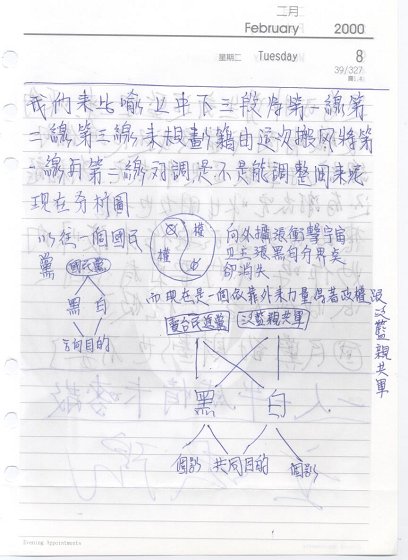 二月
February 2000
星期二 Tuesday 8
39/327
我們來比喻 上中下三段為第一線第
二線第三線來規劃 藉由這次搬風將第
線與第二線對調是不是能調整回來呢
現在分析圖
以往一個國民
黨
國民黨
黑 白
方向目的
權
權
向外擴張衝擊宇宙
卻消失
而現在是一個依靠外來力量為著政權
泛藍親共軍
民進黨
泛藍親共軍
黑 白
個別 共同目的 個別
Evening Appointments